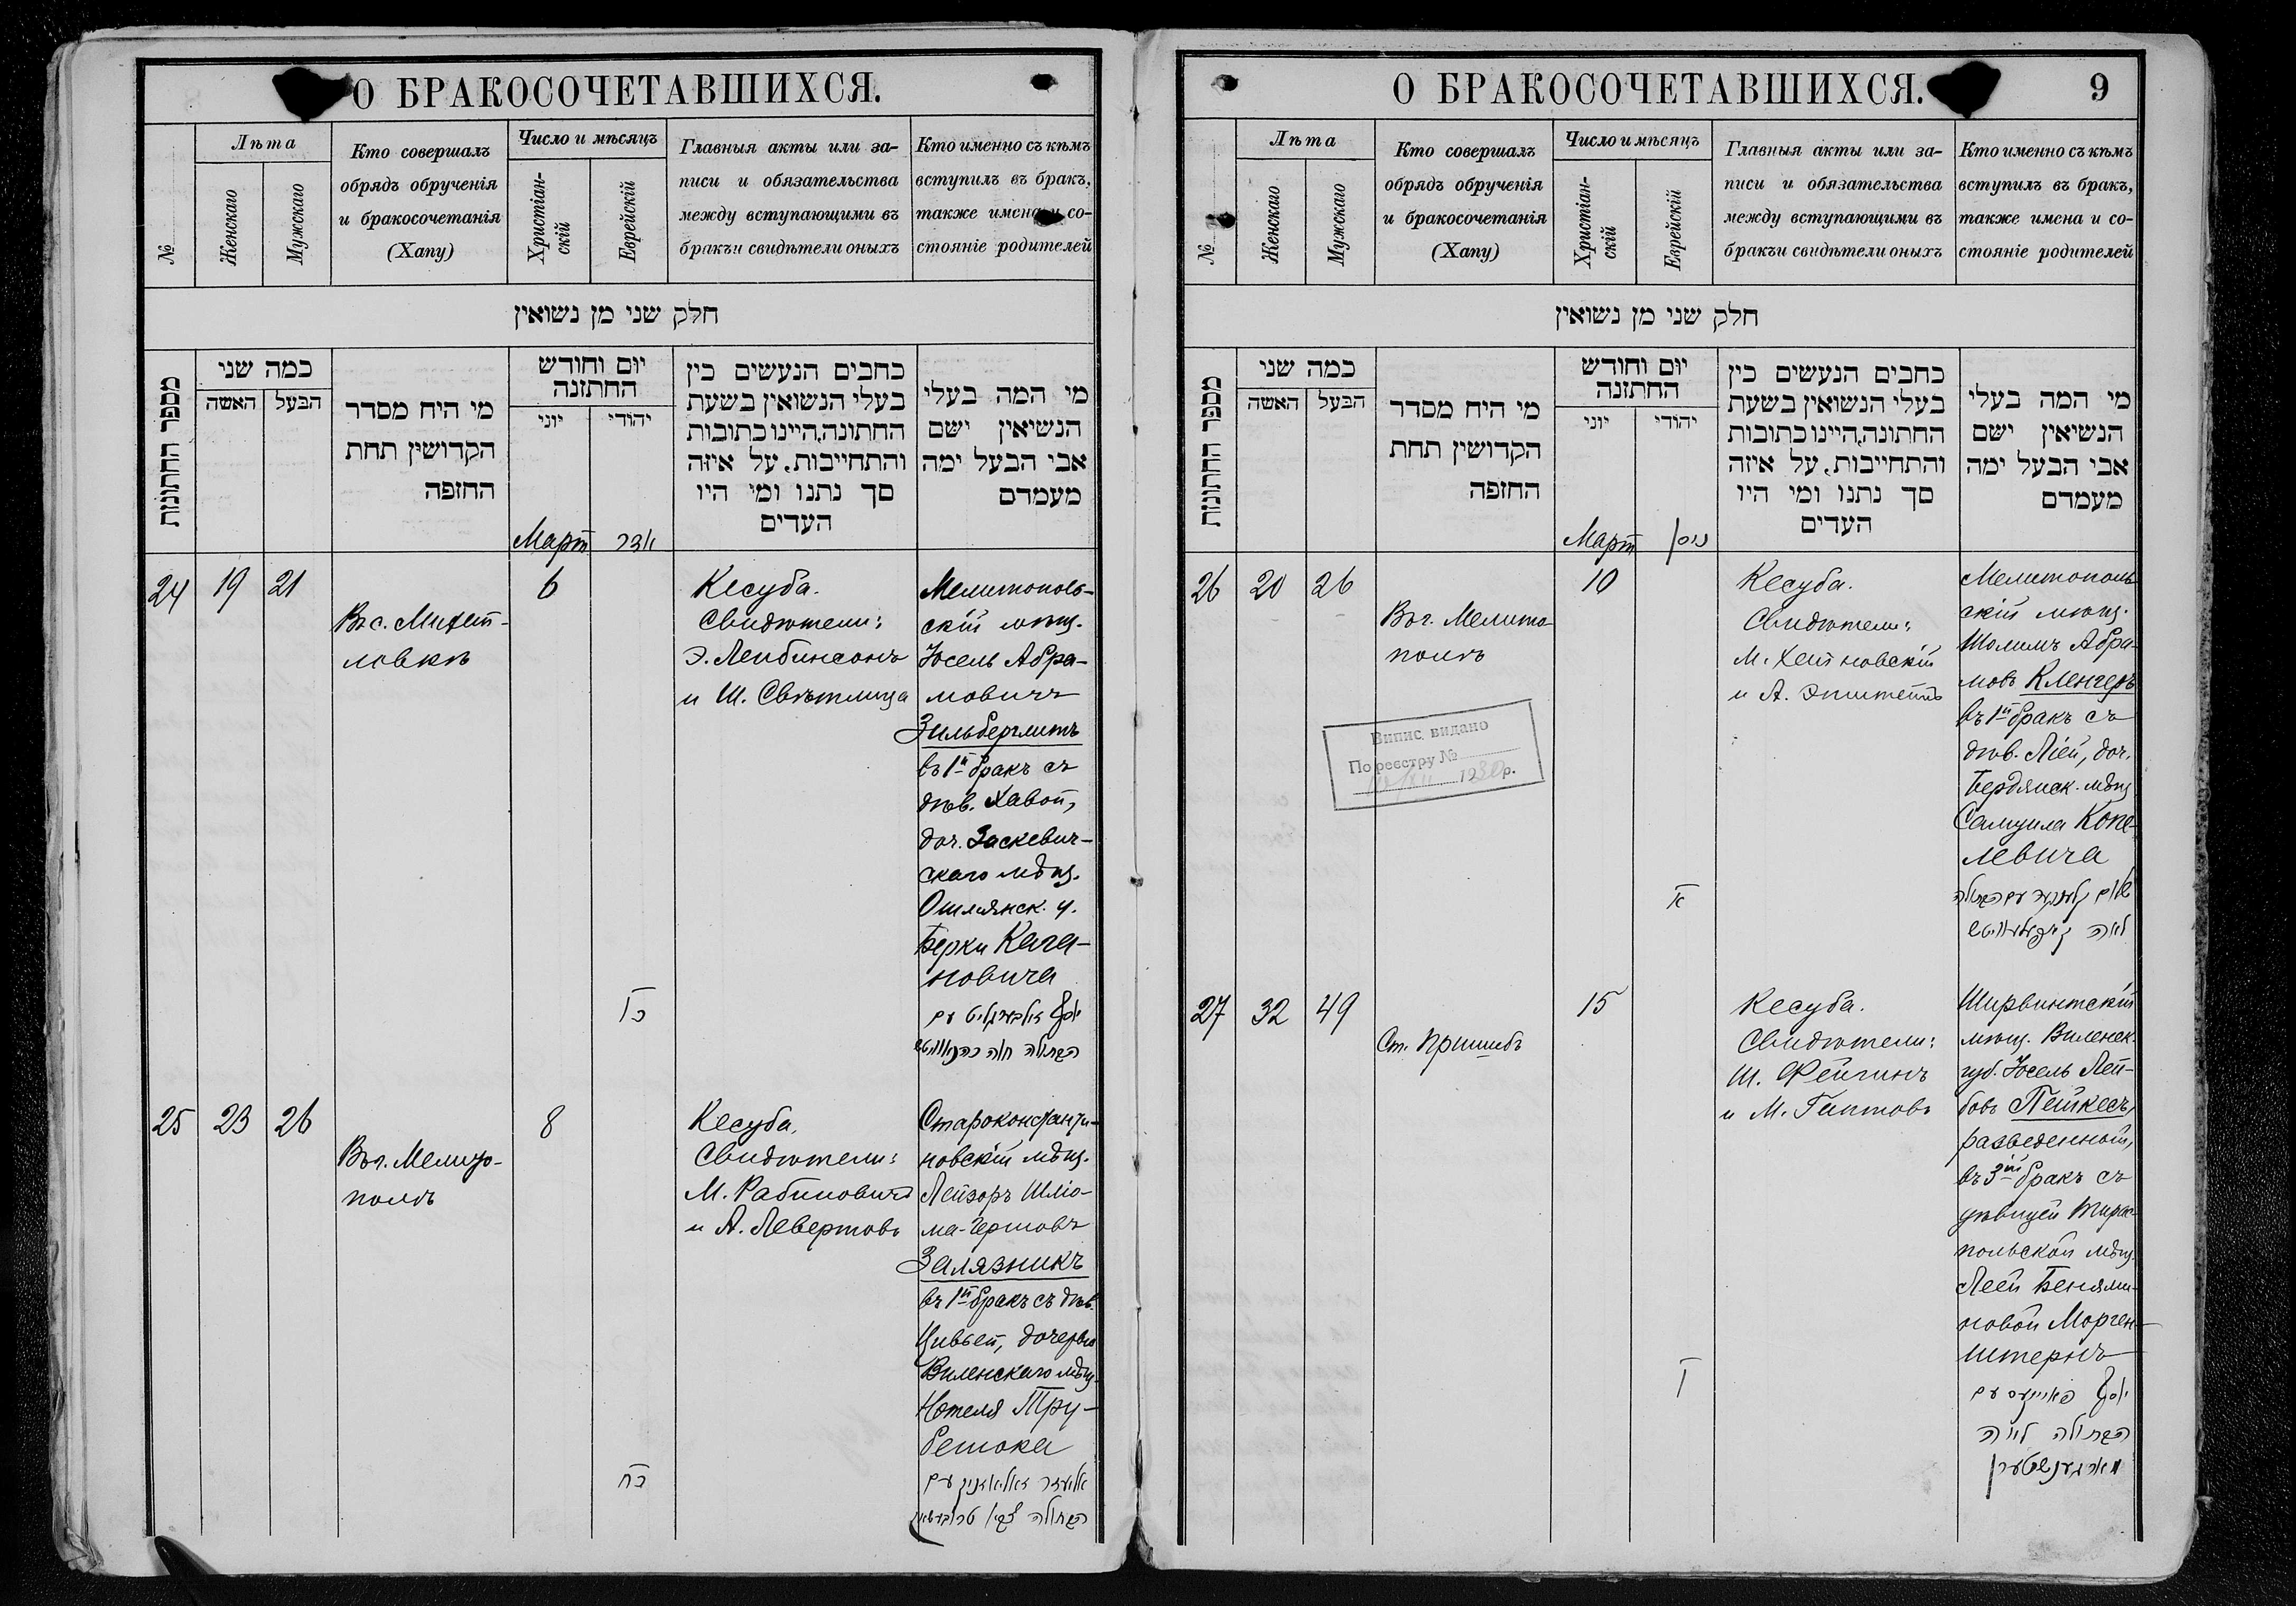 О БРАКОСОЧЕТАВШИХСЯ.
№
Лѣта
Женскаго
Мужскаго
Кто совершалъ
обрядъ обрученія
и бракосочетанія
(Хапу)
Число и мѣсяцъ
Христіан-
скій
Еврейскій
Главныя акты или за-
писи и обязательства
между вступающими въ
бракъи свидѣтели оныхъ
Кто именно съ кѣмъ
вступилъ въ бракъ,
также имена и со-
стояніе родителей
חלק שני מן נשואין
מספר החתונות
במה שני
האשה
הבעל
מי היח מסדר
הקדושין תחת
החופה
יום וחודש
החתונה
יוני
יהודי
כחבים הנעשים בין
בעלי הנשואין בשעת
החתונה, היינו כתובות
והתחייבות, על איזה
סך נתנו ומי היו
העדים
מי המה בעלי
הנשיאין ישם
אבי הבעל ימה
מעמדם
Мартъ
אדר
24
19
21
Въ с. Михай-
ловкѣ
6
כו
Кесуба.
Свидѣтели:
Э. Лейбинсонъ
и Ш. Свѣтлица
Мелитополь-
скій мѣщ.
Іосель Абра-
мовичъ
Зильберглитъ
въ 1й бракъ съ
дѣв. Хавой,
доч. Заскевич-
скаго мѣщ.
Ошмянск. у.
Берки Кага-
новича
יוסף זילבערגליט עם
הבתולה חוה כהנאוויטש
25
23
26
Въ г. Мелито-
полѣ
8
כח
Кесуба.
Свидѣтели:
М. Рабиновичъ
и А. Левертовъ
Староконстанти-
новскій мѣщ.
Лейзоръ Шлiо-
ма-Гершовъ
Залязникъ
въ 1й бракъ съ дѣв.
Цивьей, дочерью
Виленскаго мѣщ.
Нотеля Тру-
бешока
אליעזר זאליאזניק עם
הבתולה צביא
О БРАКОСОЧЕТАВШИХСЯ.
9
№
Лѣта
Женскаго
Мужскаго
Кто совершалъ
обрядъ обрученія
и бракосочетанія
(Хапу)
Число и мѣсяцъ
Христіан-
скій
Еврейскій
Главныя акты или за-
писи и обязательства
между вступающими въ
бракъи свидѣтели оныхъ
Кто именно съ кѣмъ
вступилъ въ бракъ,
также имена и со-
стояніе родителей
חלק שני מן נשואין
מספר החתונות
במה שני
האשה
הבעל
מי היח מסדר
הקדושין תחת
החופה
יום וחודש
החתונה
יוני
יהודי
כחבים הנעשים בין
בעלי הנשואין בשעת
החתונה, היינו כתובות
והתחייבות, על איזה
סך נתנו ומי היו
העדים
מי המה בעלי
הנשיאין ישם
אבי הבעל ימה
מעמדם
Мартъ
ניסן
26
20
26
Въ г. Мелито-
полѣ
Випис видано
По реєстру №
1930р.
10
א
Кесуба.
Свидѣтели:
М. Хейновскій
и А. Эпштейнъ
Мелитополь-
скій мѣщ.
Шолимъ Абра-
мовъ Кленгеръ
въ 1й бракъ съ
дѣв. Лiей, доч.
Бердянск. мѣщ.
Самуила Копе-
левича
שלום קלענגער עם הבתולה
לאה קאפעלעוויטש
27
32
49
Ст. Пришибъ
15
ו
Кесуба.
Свидѣтели:
Ш. Фейгинъ
и М. Гиттовъ
Ширвинтскій
мѣщ. Виленск.
губ. Іосель Лей-
бовъ Пейкесъ,
разведенный,
въ 3й бракъ съ
дѣвицей Тирас-
польской мѣщ.
Леей Беньями-
новой Морген-
штернъ
יוסף פאייקעס עם
הבתולה לאה
מארגענשטערן